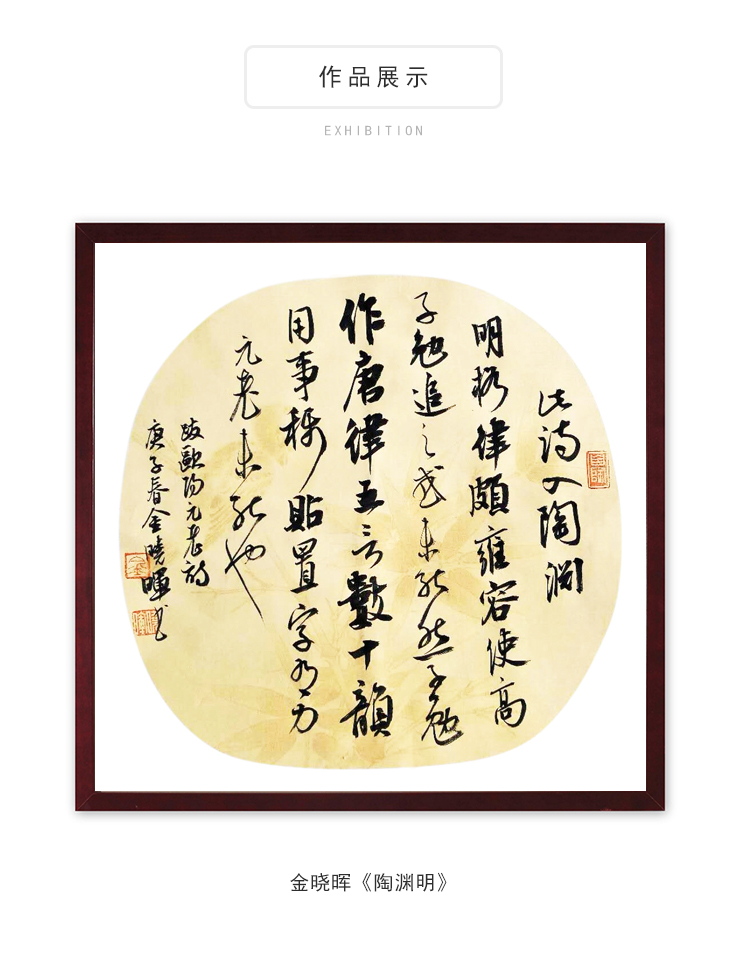 作品展示
EXHIBITION
此詩入陶淵
明格律頗雍容使高
子勉追之或未能然子勉
作唐律五言數十韻
用事穩貼置字有力
元老未能也
跋歐陽元老詩
庚子春金曉暉书
金晓晖《陶渊明》